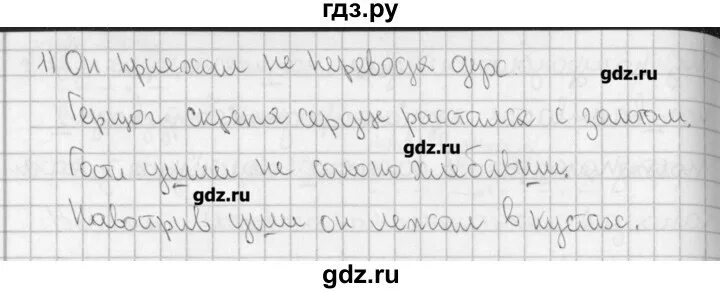 гдз.ру
1) Он приехал не переводя дух.
gdz.ru
Герцог скрепя сердце расстался с золотом.
gdz.ru
Гости ушли не солоно хлебавши.
gdz.ru
Навострив уши он лежал в кустах.
gdz.ru